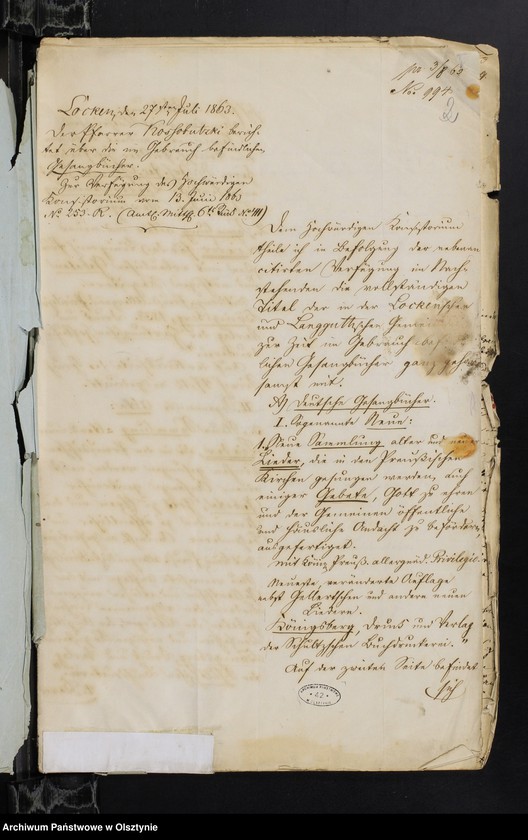 pr 3/8 63
No. 994.
2
Locken, den 27sten Juli 1863.
Der Pfarrer berich-
tet über die im Gebrauch befindlichen
Gesangbücher.
Zur Verfügung des Hochwürdigen
Konsistorium vom 13. Juni 1863
No 253. R. (Amtl. Mitth. 6tes Stück No III)
Dem Hochwürdigen Konsistorium
theile ich in Befolgung der nebenan
citirten Verfügung im Nach-
stehenden die vollständigen
Titel der in der Lockenschen
und Langguthschen
zur Zeit im Gebrauch
lichen Gesangbücher ganz
samst mit.
A) Deutsche Gesangbücher.
I. Sogenannte Neue:
1. Neue Sammlung alter und neuer
Lieder, die in den Preußischen
Kirchen gesungen werden, auch
einiger Gebete, Gott zu ehren
und der Gemeinen öffentliche
und häusliche Andacht zu befördern,
ausgefertiget.
Mit Königl. Preuß. allergnäd. Privilegio.
Neueste, veränderte Auflage
nebst Gellertschen und andern neuen
Liedern.
Königsberg, Druck und Verlag
der Schultzschen Buchdruckerei."
Auf der zweiten Seite befindet
sich
ARCHIWUM PAŃSTWOWE
* 42 *
W OLSZTYNIE
Archiwum Państwowe w Olsztynie